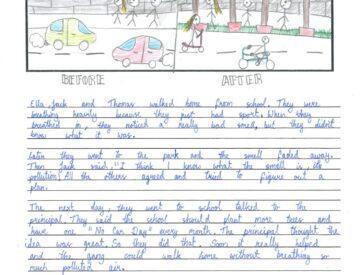 BEFORE
AFTER
Ella, Jack and Thomas walked home from school. They were
breathing heavily because they just had sport. When they
breathed in, they noticed a really bad smell, but they didn't
know what it was.
Later they went to the park and the smell faded away.
Then Jack said, "I think I know what the smell is, its
pollution." All the others agreed and tried to figure out a
plan.
The next day, they went to school talked to the
principal. They said the school should plant more trees and
have one "No Car Day" every month. The principal thought the
idea was great. So they did that. Soon it really helped
and the gang could walk home without breathing so
much polluted air.